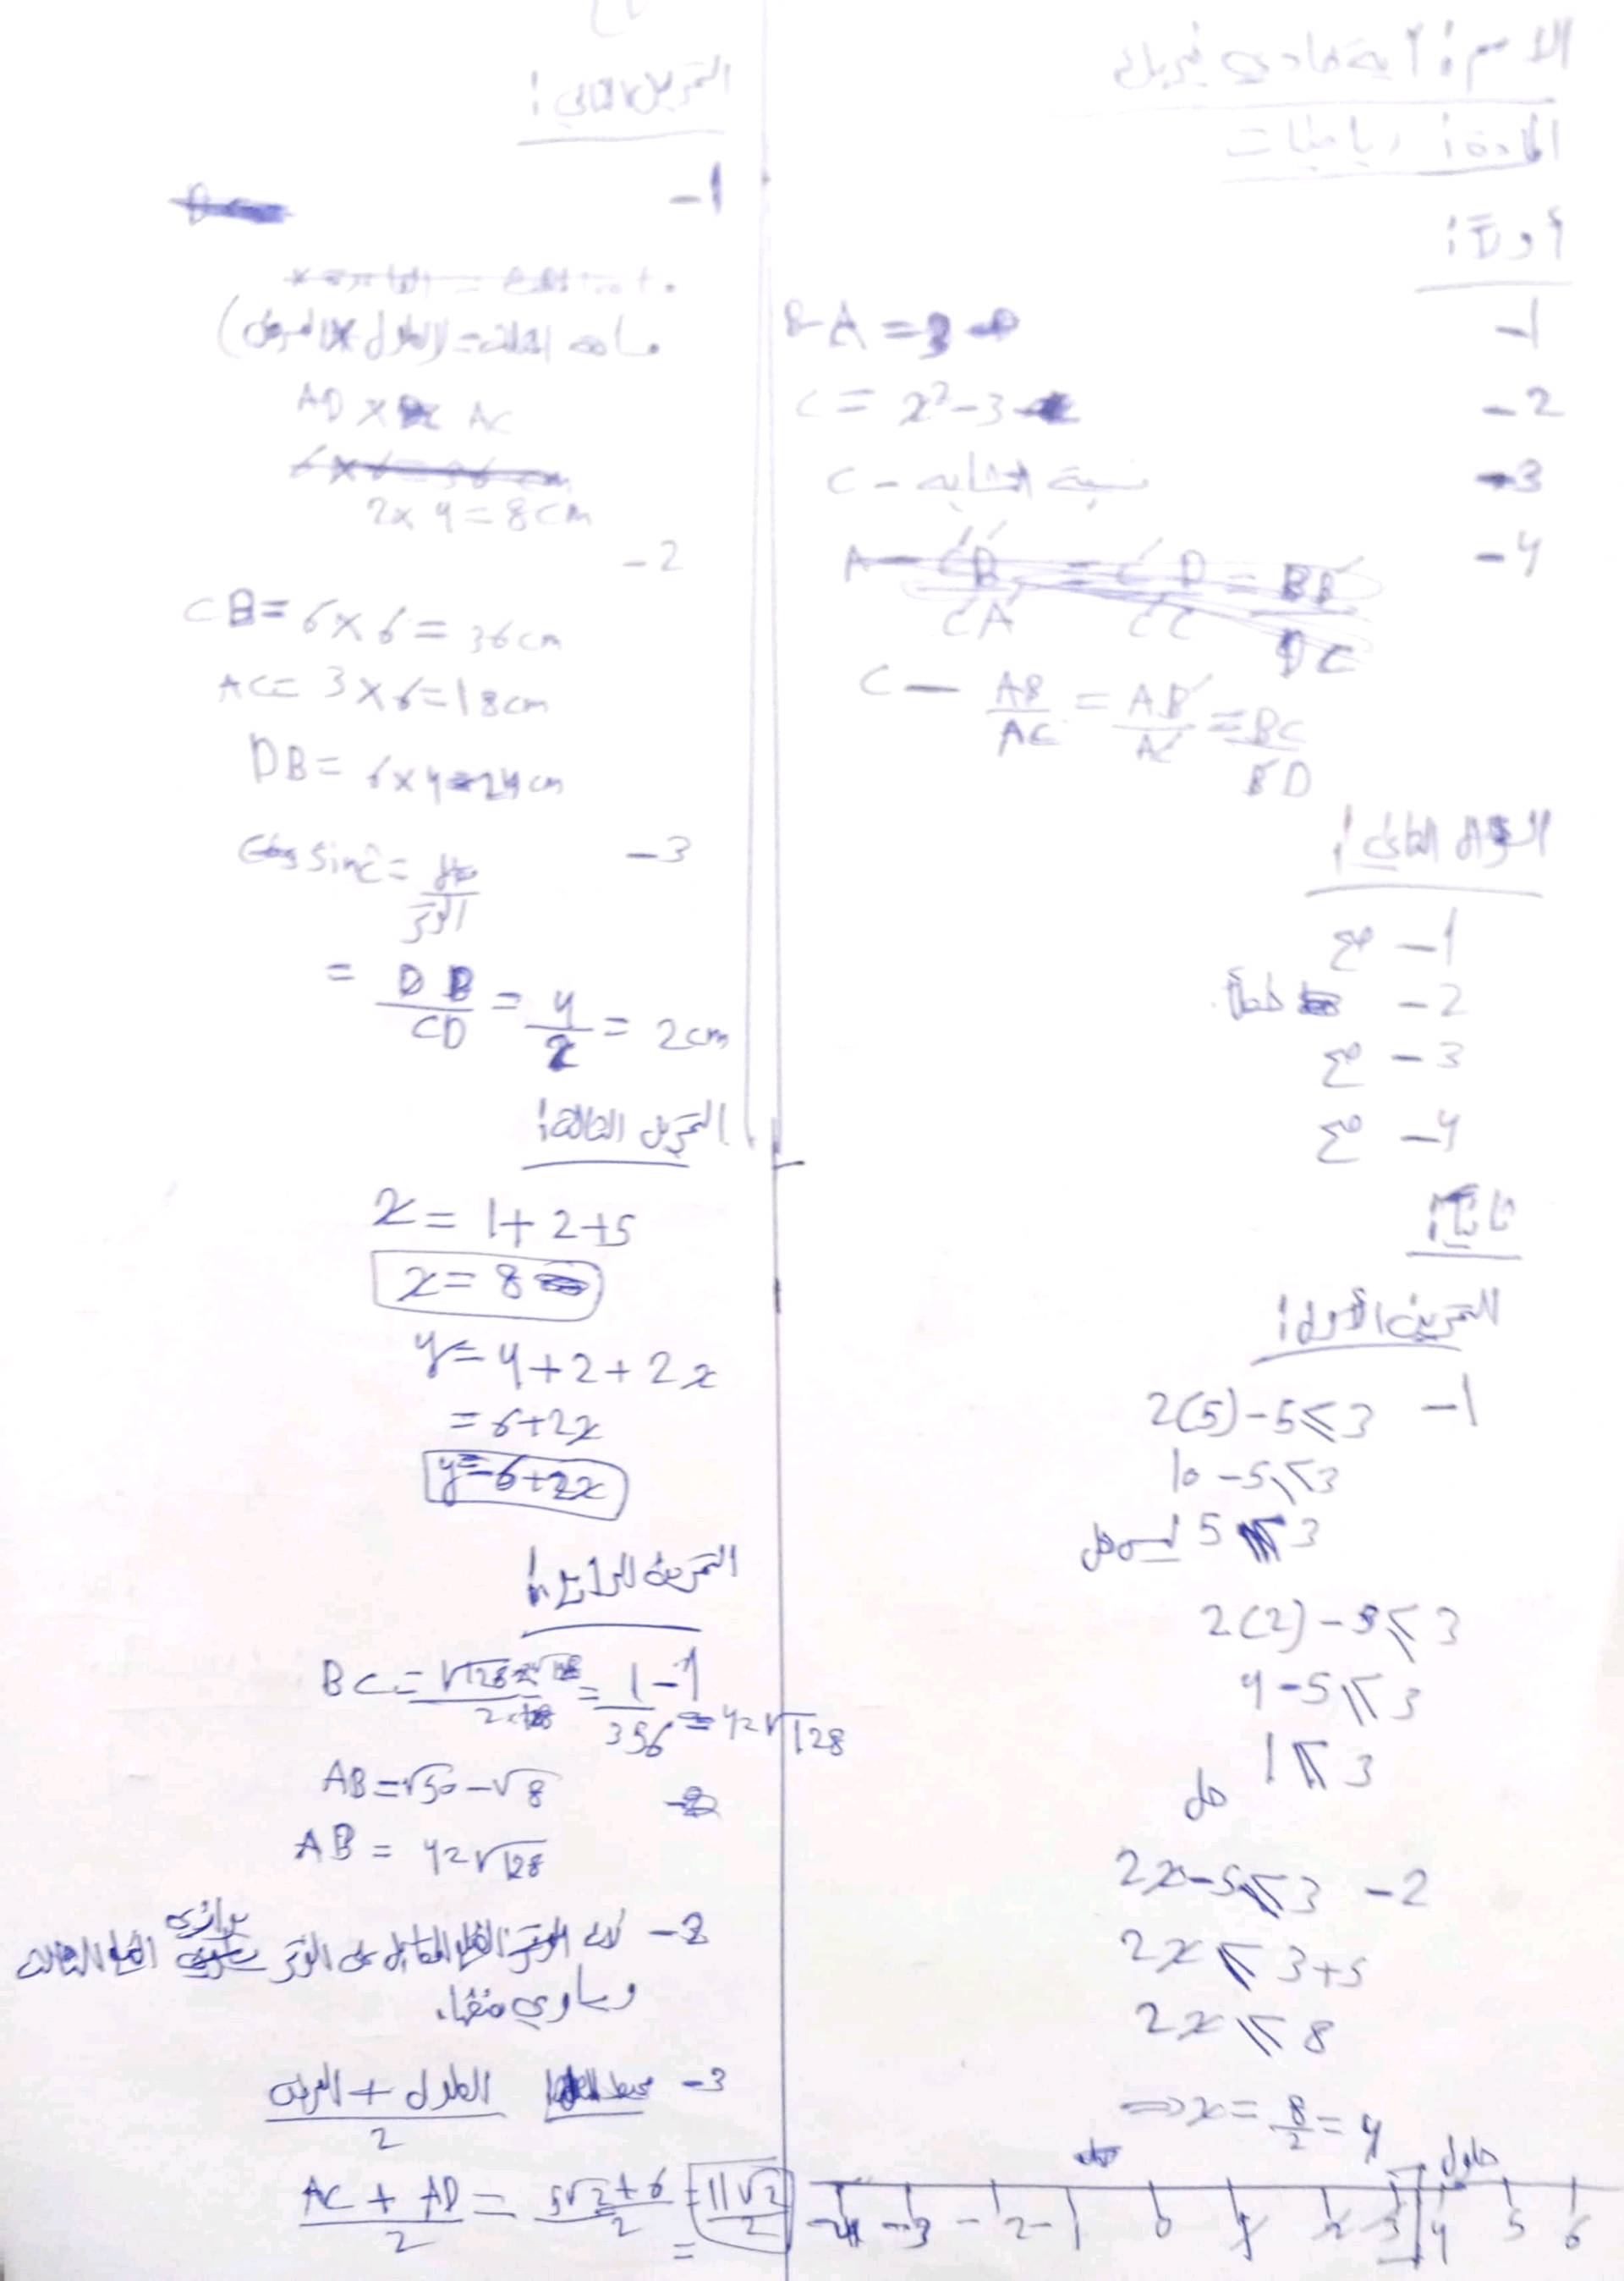 الاسم: آية هادي
المادة: رياضيات
أولاً:
1- A = 3
2- C = x² - 3
3- C - نسبة التشابه
4-
C - AB/AC = AB'/AC' = BC/BD
السؤال الثاني:
1- صح
2- خطأ
3- صح
4- صح
ثانياً:
التمرين الأول:
1- 2(5) - 5 ⩽ 3
10 - 5 ⩽ 3
5 ⩽ 3 ليس حل
2(2) - 5 ⩽ 3
4 - 5 ⩽ 3
1 ⩽ 3
حل
2- 2x - 5 ⩽ 3
2x ⩽ 3+5
2x ⩽ 8
⇒ x = 8/2 = 4
حلول
-4 -3 -2 -1 0 1 2 3 4 5 6
التمرين الثاني:
1-
مساحة المثلث = (الطول × العرض)
AD × AC
2 × 4 = 8cm
2-
CB = 6 × 6 = 36cm
AC = 3 × 6 = 18cm
DB = 6 × 4 = 24cm
3- sin C =
الوتر
= DB/CD = 4/2 = 2cm
التمرين الثالث:
x = 1 + 2 + 5
x = 8
y = 4 + 2 + 2x
= 6 + 2x
y = 6 + 2x
التمرين الرابع:
1- BC = = 1/356 = 42√128
AB = √50 - √8
AB = 42√128
2- لأن الضلع المقابل على الوتر يوازي الضلع الثالث
ويساوي نصفها.
3- محيط الطول + العرض / 2
AC + AD / 2 = 5√2 + 6 / 2 = 11√2 / 2
=